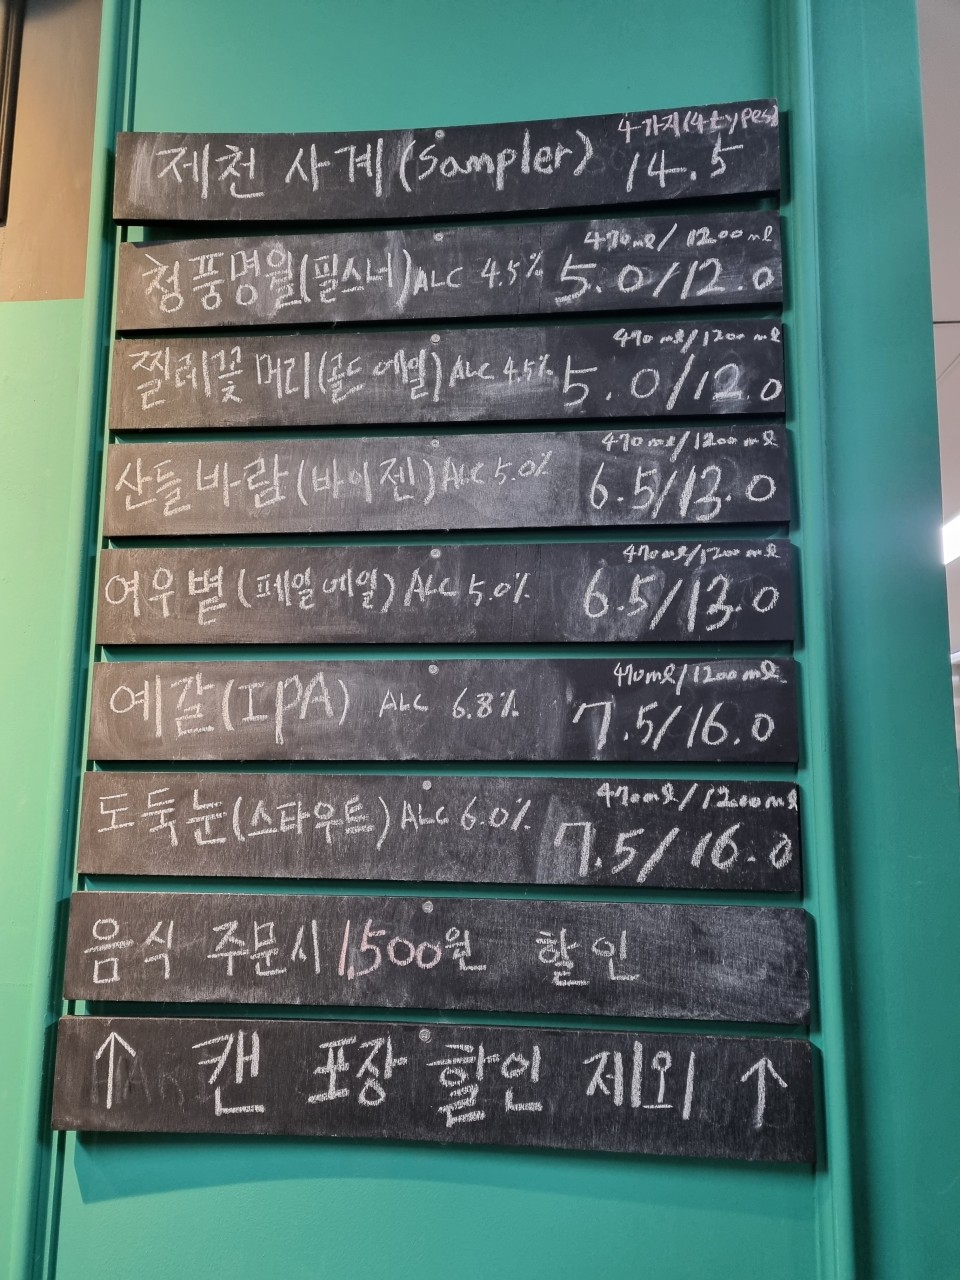 4가지(4types)
제천 사계(Sampler) 14.5
470ml/ 1200ml
청풍명월(필스너)ALC 4.5% 5.0/12.0
470ml/1200ml
찔레꽃머리(골드 에일)ALC 4.5% 5.0/12.0
470ml/1200ml
산들바람(바이젠)ALC 5.0% 6.5/13.0
470ml/1200ml
여우별(페일에일)ALC 5.0% 6.5/13.0
470ml/1200ml
예갈(IPA) ALC 6.8% 7.5/16.0
470ml/1200ml
도둑눈(스타우트)ALC 6.0% 7.5/16.0
음식 주문시 1,500원 할인
↑ 캔 포장 할인 제외 ↑